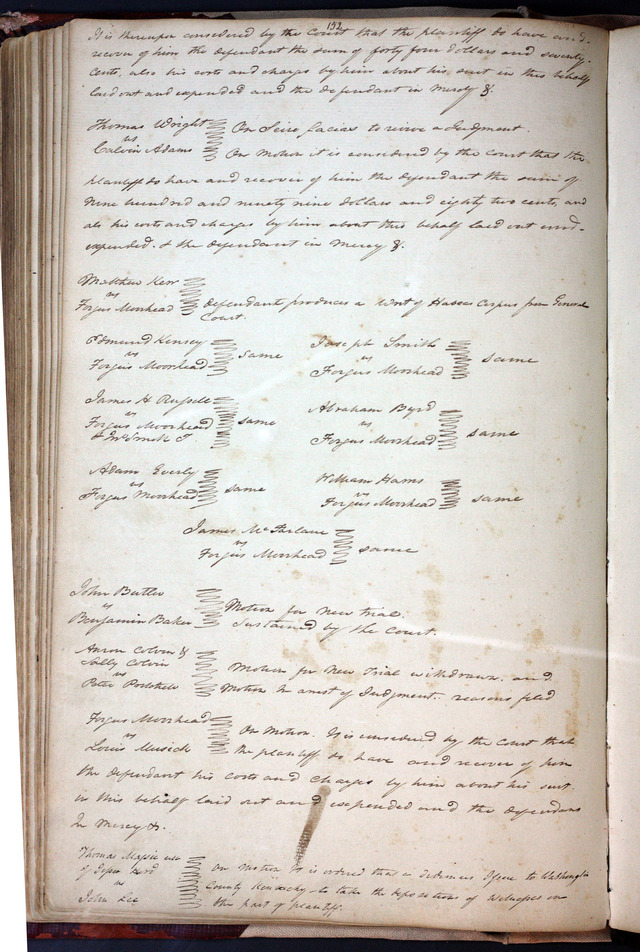 152
It is thereupon considered by the Court that the plantiff do have and
recover of him the defendant the sum of forty four dollars and seventy
Cents, also his costs and charges by him about his suit in this behalf
laid out and expended and the defendant in Mercy &.
Thomas Wright
vs
Calvin Adams
On Scire facias to revive a Judgment.
On Motion it is considered by the court that the
plantiff do have and recover of him the defendant the sum of
Nine hundred and ninety nine dollars and eighty two cents, and
als his costs and charges by him about this behalf laid out and
expended. & the defendant in Mercy &.
Matthew Kerr
vs
Fergus Moorhead
defendant produces a Writ of Habeas Corpus from General
Court.
Edmund Kensey
vs
Fergus Moorhead
same
Joseph Smith
vs
Fergus Moorhead
same
James H Russell
vs
Fergus Moorhead
same
Abraham Byrd
vs
Fergus Moorhead
same
Adam Everly
vs
Fergus Moorhead
same
William Hams
vs
Fergus Moorhead
same
James McFarlane
vs
Fergus Moorhead
same
John Butler
vs
Benjamin Baker
Motion for new trial.
Sustained by the Court.
Aaron Colvin &
Sally Colvin
vs
Peter
Motion for New Trial withdrawn. and
Motion In arrest of Judgment. reasons filed
Fergus Moorhead
vs
Louis Musick
On Motion. It is considered by the court that
the plantiff do have and recover of him
the defendant his costs and charges by him about his suit
in this behalf laid out and expended and the defendant
In Mercy &.
Thomas
of
vs
John Lee
On Motion It is ordered that a Dedimus Issue to Washington
County Kentucky to take the depositions of Witnesses on
the part of plantiff.